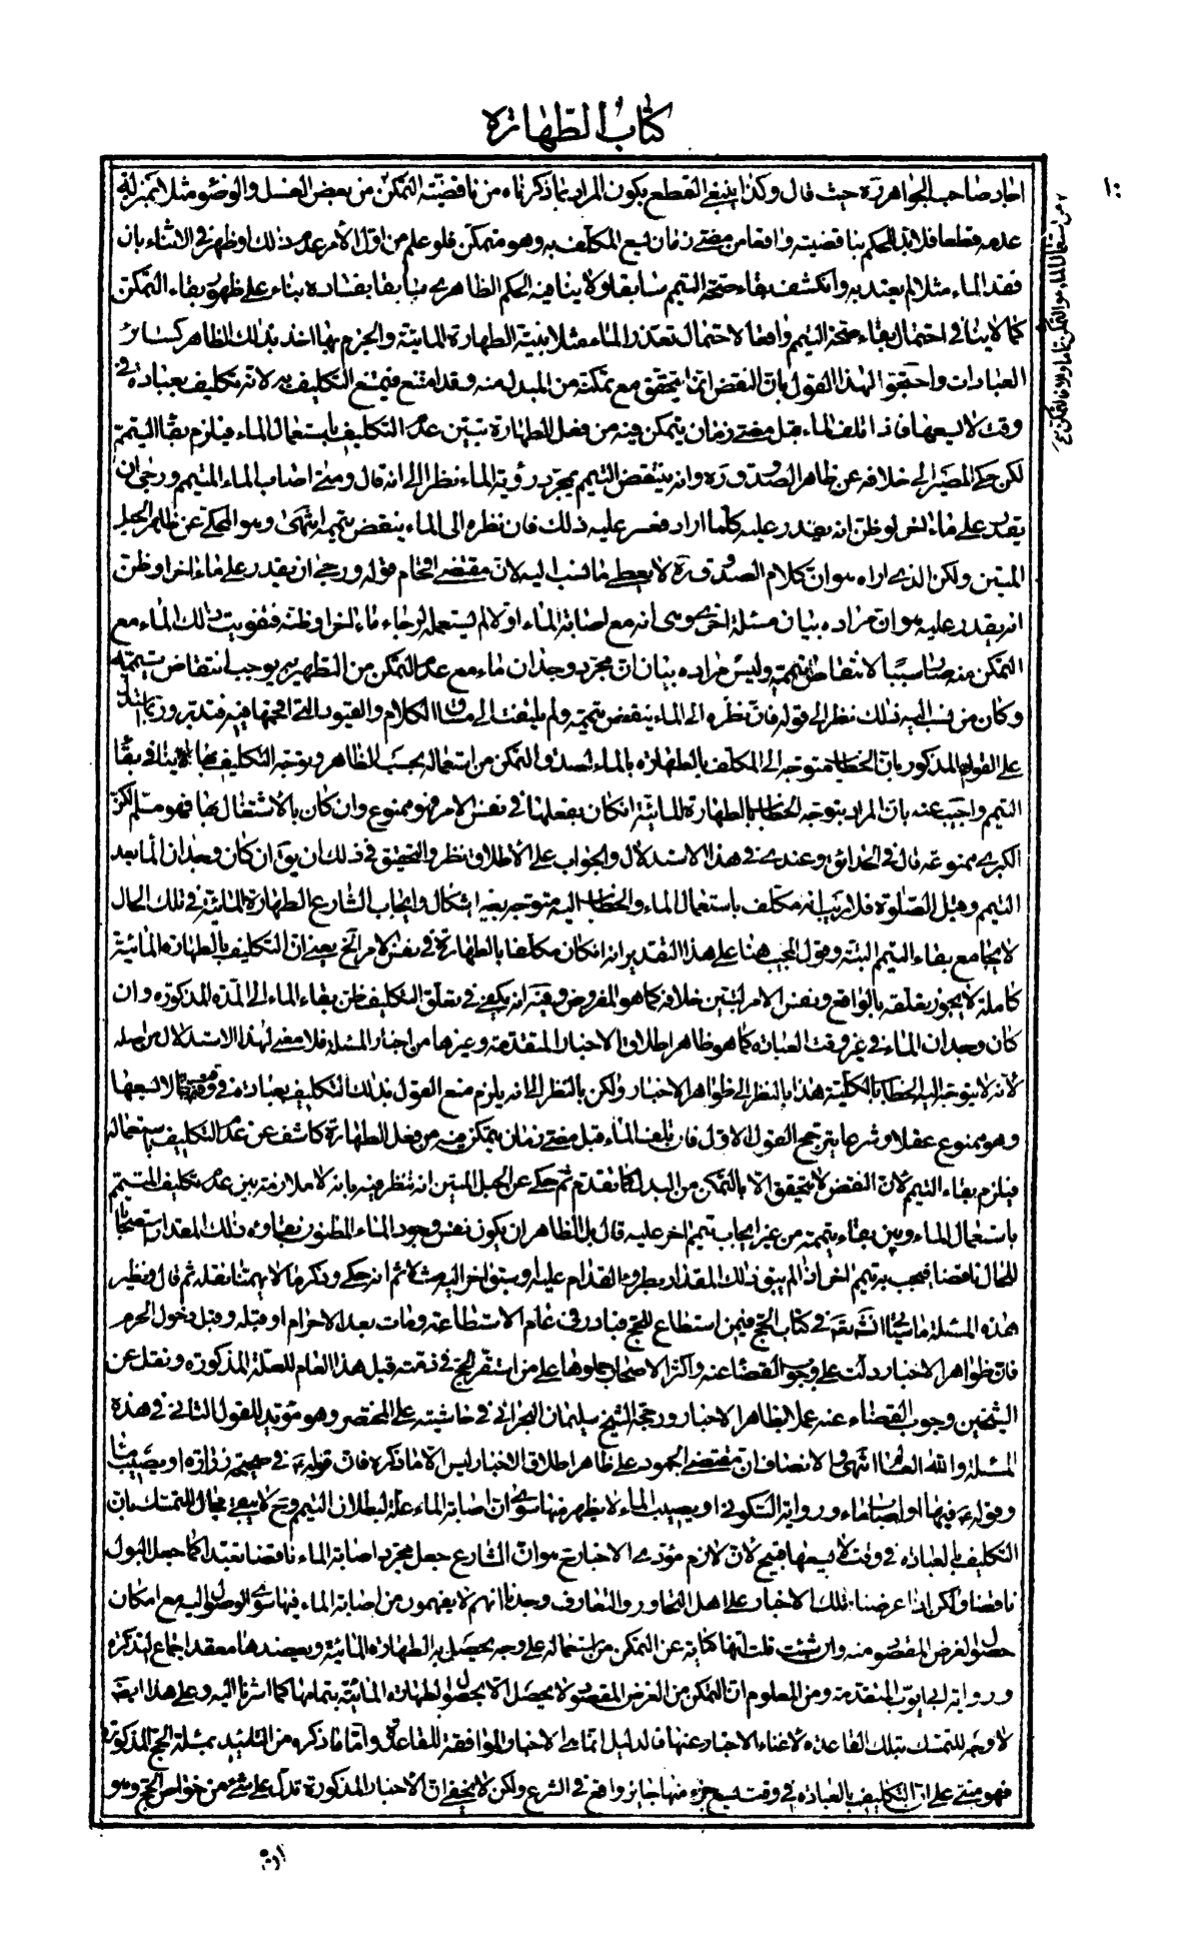 كتاب الطهارة
اجاد صاحب الجواهر ره حيث قال وكذا ينبغي القطع بكون المراد بما ذكرناه من ناقضية التمكن من بعض الغسل والوضوء مثلا بمنزلة
عدمه قطعا فلا بد للحكم بناقضيته واقعا من مضي زمان يسع المكلف به وهو متمكن فلو علم من اول الأمر عدم ذلك او ظهر في الاثناء بان
فقد الماء مثلا لم يعتد به وانكشف بقاء صحة التيمم سابقا ولا ينافيه الحكم الظاهري سابقا بفساده بناء على ظهور بقاء التمكن
كما لا ينافي احتمال بقاء صحة التيمم واقعا لاحتمال تعذر الماء مثلا بنية الطهارة المائية والجزم بها اخذ بذلك الظاهر كسائر
العبادات واحتجوا لهذا القول بان النقض انما يتحقق مع تمكنه من المبدل منه وقد امتنع فيمتنع التكليف به لانه تكليف بعبادة في
وقت لا يسعها فاذا تلف الماء قبل مضي زمان يتمكن فيه من فعل الطهارة تبين عدم التكليف باستعمال الماء فيلزم بقاء التيمم
لكن حكى المصير الى خلافه عن ظاهر الصدوق ره وانه ينتقض التيمم بمجرد رؤية الماء نظرا الى انه قال ومتى اصاب المتيمم الماء ورجى ان
يقدر على ماء اخر او ظن انه يقدر عليه كلما اراد فعسر عليه ذلك فان نظره الى الماء ينقض تيممه انتهى وهو المحكي عن ظاهر الحبل
المتين ولكن الذي اراه هو ان كلام الصدوق ره لا يعطي ما نسب اليه لان مقتضى اقحام قوله ورجى ان يقدر على ماء اخر او ظن
انه يقدر عليه هو ان مراده بيان مسئلة اخرى وهي انه مع اصابة الماء اولا لم يستعمله لرجاء ماء اخر او ظنه فتفويت ذلك الماء مع
التمكن منه صار سببا لانتقاض تيممه وليس مراده بيان ان مجرد وجدان ماء مع عدم التمكن من التطهير به يوجب انتقاض تيممه
وكان من نسب اليه ذلك نظر الى قوله فان نظره الى الماء ينقض تيممه ولم يلتفت الى مساق الكلام والقيود التي اقحمها فيه فتدبر وربما يستدل
على القول المذكور بان الخطاب متوجه الى المكلف بالطهارة بالماء لصدق التمكن من استعماله بحسب الظاهر وتوجه التكليف بها لا ينافي بقاء
التيمم واجيب عنه بان المراد بتوجه الخطاب بالطهارة المائية ان كان بفعلها في نفس الامر فهو ممنوع وان كان بالاشتغال بها فهو مسلم لكن
الكبرى ممنوعة قال في الحدائق وعندي في هذا الاستدلال والجواب على الاطلاق نظر والتحقيق في ذلك ان يق ان كان وجدان الماء بعد
التيمم وقبل الصلوة فلا ريب انه مكلف باستعمال الماء والخطاب اليه متوجه بغير اشكال وايجاب الشارع الطهارة المائية في تلك الحال
لا يجامع بقاء التيمم البتة وقول المجيب هنا على هذا التقدير انه ان كان مكلفا بالطهارة في نفس الامر الخ يعني ان التكليف بالطهارة المائية
كاملة لا يجوز تعلقه بالواقع ونفس الامر لتبين خلافه كما هو المفروض وفيه انه يكفي في تعلق التكليف ظن بقاء الماء الى المدة المذكورة وان
كان وجدان الماء في غير وقت العبادة كما هو ظاهر اطلاق الاخبار المتقدمة وغيرها من اخبار المسئلة فلا معنى لهذا الاستدلال من اصله
لأنه لا يتوجه اليه الخطاب بالكلية هذا بالنظر الى ظواهر الاخبار ولكن بالنظر الى انه يلزم منع القول بذلك التكليف بعبادة في وقت لا يسعها
وهو ممنوع عقلا وشرعا يترجح القول الاول فان تلف الماء قبل مضي زمان يتمكن فيه من فعل الطهارة كاشف عن عدم التكليف باستعماله
فيلزم بقاء التيمم لأن النقض لا يتحقق الا بالتمكن من المبدل كما تقدم ثم حكى عن الحبل المتين انه تنظر فيه بانه لا ملازمة بين عدم تكليف المتيمم
باستعمال الماء وبين بقاء تيممه من غير ايجاب تيمم اخر عليه قال بل الظاهر ان يكون نفس وجود الماء المظنون بقاؤه ذلك المقدار استصحابا
للحال ناقضا فيجب به تيمم اخر اذا لم يبق ذلك المقدار بطرو انعدام عليه او سبق اخر اليه مثلا ثم انه حكى وذكر ما لا يهمنا نقله ثم قال ونظير
هذه المسئلة ما سيجئ انشاء الله تعالى في كتاب الحج فيمن استطاع للحج فبادر في عام الاستطاعة ومات بعد الاحرام او قبله وقبل دخول الحرم
فان ظواهر الاخبار دلت على وجوب القضاء عنه واكثر الاصحاب حملوها على من استقر الحج في ذمته قبل هذا العام للعلة المذكورة ونقل عن
الشيخين وجوب القضاء عنه عملا بظاهر الاخبار ورجحه الشيخ سليمان البحراني في حاشيته على المختصر وهو مؤيد للقول الثاني في هذه
المسئلة والله العالم انتهى والانصاف ان مقتضى الجمود على ظاهر اطلاق الاخبار ليس الا ما ذكره فان قوله ع في صحيحة زرارة او يصيب ماء
وقوله ع فيها او اصاب ماء ورواية السكوني او يصيب الماء لا يظهر منها سوى ان اصابة الماء علة لبطلان التيمم وح لا يبقى مجال للتمسك بان
التكليف بالعبادة في وقت لا يسعها قبيح لأن لازم مؤدى الاخبار ح هو ان الشارع جعل مجرد اصابة الماء ناقضا تعبدا كما جعل البول
ناقضا ولكن اذا عرضنا تلك الاخبار على اهل التحاور والتعارف وجدنا انهم لا يفهمون من اصابة الماء فيها سوى الوصول اليه مع امكان
حصول الغرض المقصود منه وان شئت قلت انها كناية عن التمكن من استعماله على وجه يحصل به الطهارة المائية ويعضدها معقد اجماع التذكرة
ورواية ابي ايوب المتقدمة ومن المعلوم ان التمكن من الغرض المقصود لا يحصل الا بحصول الطهارة المائية بتمامها كما اشرنا اليه وعلى هذا ايضا
لا وجه للتمسك بتلك القاعدة لأغناء الاخبار عنها فالدليل انما هي الاخبار الموافقة للقاعدة واما ما ذكره من التاييد بمسئلة الحج المذكورة
فهو مبني على ان التكليف بالعبادة في وقت يسع جزء منها جايز واقع في الشرع ولكن لا يخفى ان الاخبار المذكورة تدل على شئ من خواص الحج وهو